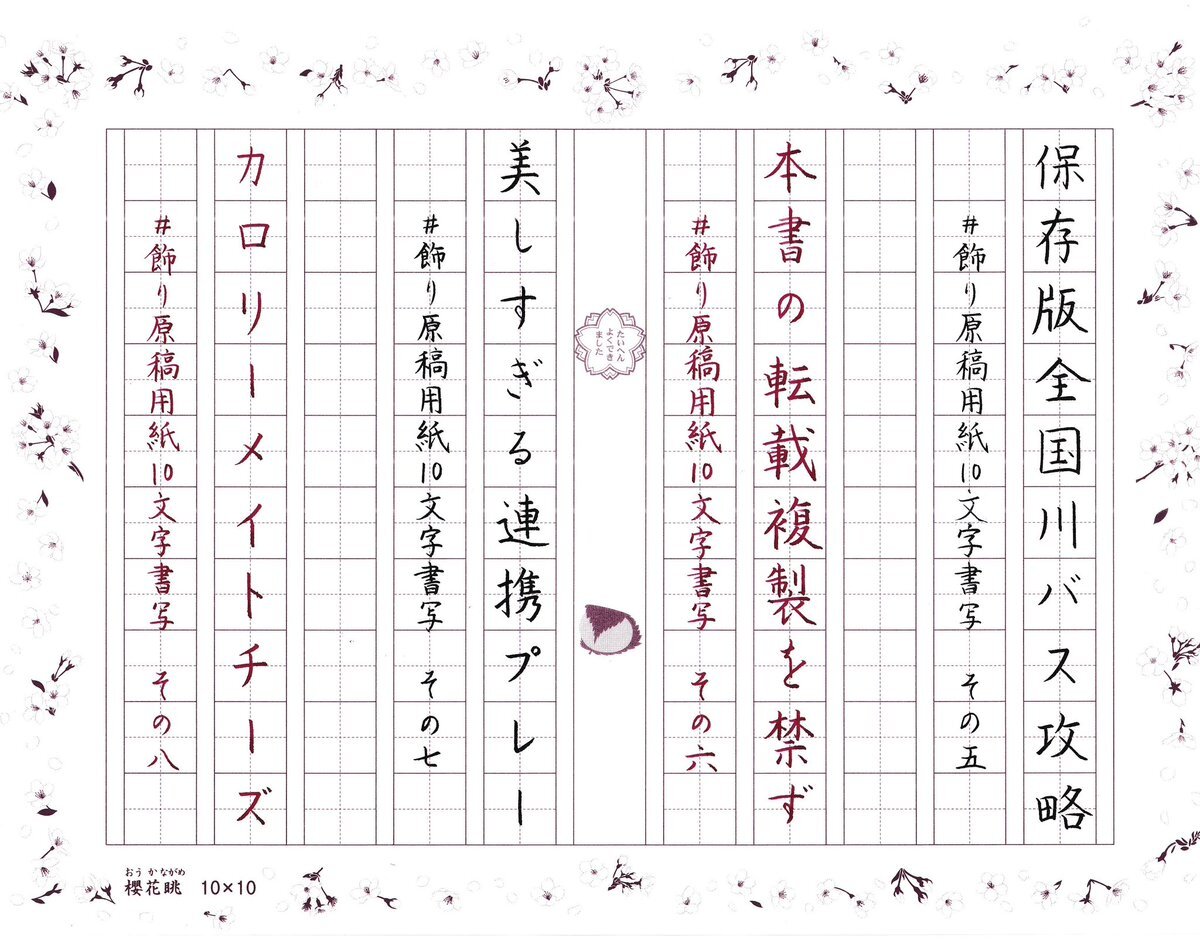 保存版全国川バス攻略
#飾り原稿用紙10文字書写 その五
本書の転載複製を禁ず
#飾り原稿用紙10文字書写 その六
たいへん
よくでき
ました
美しすぎる連携プレー
#飾り原稿用紙10文字書写 その七
カロリーメイトチーズ
#飾り原稿用紙10文字書写 その八
おうかながめ
櫻花眺 10×10